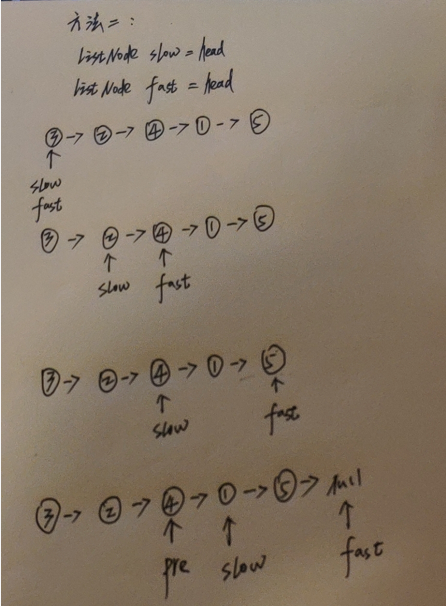 方法二:
ListNode slow = head
ListNode fast = head
③ -> ② -> ④ -> ① -> ⑤
↑
slow
fast
③ -> ② -> ④ -> ① -> ⑤
↑ ↑
slow fast
③ -> ② -> ④ -> ① -> ⑤
↑ ↑
slow fast
③ -> ② -> ④ -> ① -> ⑤ -> null
↑ ↑ ↑
pre slow fast